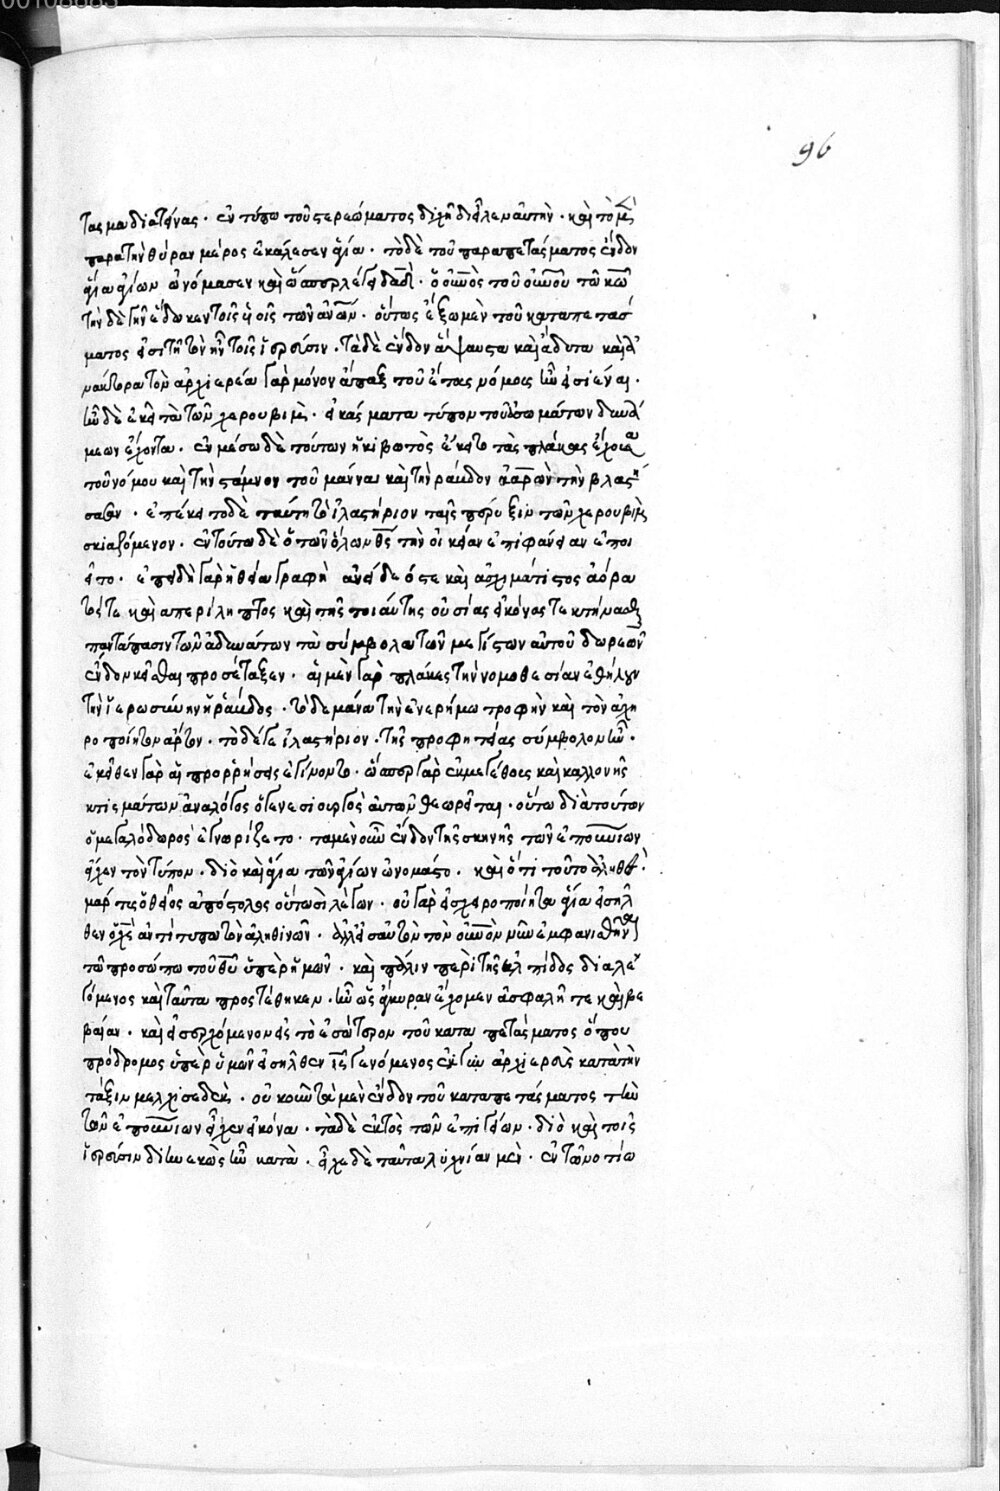 00108883
96
τασμα διατείνας. ἐν τύπω τοῦ στερεώματος διχῆ διεῖλεν αὐτὴν. καὶ τὸ μὲν
παρα τὴν θύραν μέρος ἐκάλεσεν ἅγια. τὸ δὲ τοῦ παραπετάσματος ἔνδον
ἅγια ἁγίων ὠνόμασεν καὶ ὥσπερ λέγει δαδ. ὁ οὐνος τοῦ οὐνου τῶ κω
τὴν δὲ γῆν ἔδωκεν τοῖς υἱοῖς τῶν ανων. οὕτως ἔξω μὲν τοῦ καταπετάσ
ματος ἐσιτητὸν ἦν τοῖς ἱερεῦσιν. τὰ δὲ ἔνδον ἄψαυστα καὶ ἄδυτα καὶ ἀ
νάκτορα τὸν ἀρχιερέα γὰρ μόνον ἅπαξ τοῦ ἔτους νόμος ἦν εἰσιέναι.
ἦν δὲ ἐκεῖ τὰ τῶν χερουβὶμ. ἐκάσματα τύπον τοῦ ἀσωμάτων δυνά
μεων ἔχοντα. ἐν μέσω δὲ τούτων ἡ κιβωτὸς ἔκειτο τὰς πλάκας ἔχουσα
τοῦ νόμου καὶ τὴν στάμνον τοῦ μάννα καὶ τὴν ράβδον ἀαρὼν τὴν βλαστή
σασαν. ἐπέκειτο δὲ ταύτη τὸ ἱλαστήριον ταῖς πτέρυξιν τῶν χερουβὶμ
σκιαζόμενον. ἐν τούτω δὲ ὁ τῶν ὅλων θς τὴν οἰκείαν ἐπιφάνειαν ἐποι
εῖτο. ἐπειδὴ γὰρ ἡ θεία γραφὴ ἀνείδεός τε καὶ ἀσχημάτιστος ἀόρα
τός τε καὶ απερίληπτος καὶ τῆς τοιαύτης οὐσίας εἰκόνας τεκτήνασθαι
παντάπασιν τῶν ἀδυνάτων τὰ σύμβολα τῶν μεγίστων αὐτοῦ δωρεῶν
ἔνδον κεῖσθαι προσέταξεν. αἱ μὲν γὰρ πλάκες τὴν νομοθεσίαν ἐδήλουν
τὴν ἱερωσύνην ἡ ράβδος. τὸ δε μάννα τὴν ἐν ερήμω τροφὴν καὶ τὸν ἀχει
ροποίητον ἄρτον. τὸ δέ γε ἱλαστήριον. τῆς προφητείας σύμβολον ἦν.
ἐκεῖθεν γὰρ αἱ προρρήσεις ἐγίνοντο. ὥσπερ γὰρ ἐκ μεγέθους καὶ καλλονῆς
κτισμάτων ἀναλόγως ὁ γενεσιουργὸς αὐτῶν θεωρεῖται. οὕτω διὰ τούτων
ὁ μεγαλόδωρος ἐγνωρίζετο. τα μὲν οὖν ἔνδον τῆς σκηνῆς τῶν ἐπουνίων
εἶχεν τὸν τύπον. διὸ καὶ ἅγια τῶν ἁγίων ὠνομαστο. καὶ ὅτι τοῦτο ἀληθὲς
μάρτυς ὁ θεῖος ἀπόστολος οὑτωσὶ λέγων. οὐ γὰρ εἰς χειροποίητα ἅγια εἰσῆλ
θεν ὁ χς ἀντίτυπα τῶν ἀληθινῶν. ἀλλ' εἰς αὐτὸν τὸν οὐνον νῦν ἐμφανισθῆναι
τῶ προσώπω τοῦ θυ ὑπὲρ ἡμῶν. καὶ πάλιν περὶ τῆς ἐλπίδος διαλε
γόμενος καὶ ταῦτα προστέθηκεν. ἣν ὡς ἄγκυραν ἔχομεν ἀσφαλῆ τε καὶ βε
βαίαν. καὶ εἰσερχόμενον εἰς τὸ ἐσώτερον τοῦ καταπετάσματος ὅπου
πρόδρομος ὑπὲρ ἡμῶν εἰσῆλθεν ις γενόμενος ἀρχιερεὺς κατὰ τὴν
τάξιν μελχισεδὲκ. οὐκοῦν τὰ μὲν ἔνδον τοῦ καταπετάσματος τὴν
τῶν ἐπουνίων εἶχεν εἰκόνα. τὰ δὲ ἐκτὸς τῶν ἐπιγείων. διὸ καὶ τοῖς
ἱερεῦσιν διηνεκῶς ἦν κατὰ. εἶχε δὲ ταῦτα λυχνίαν μὲν. ἐν τῶ νοτίω